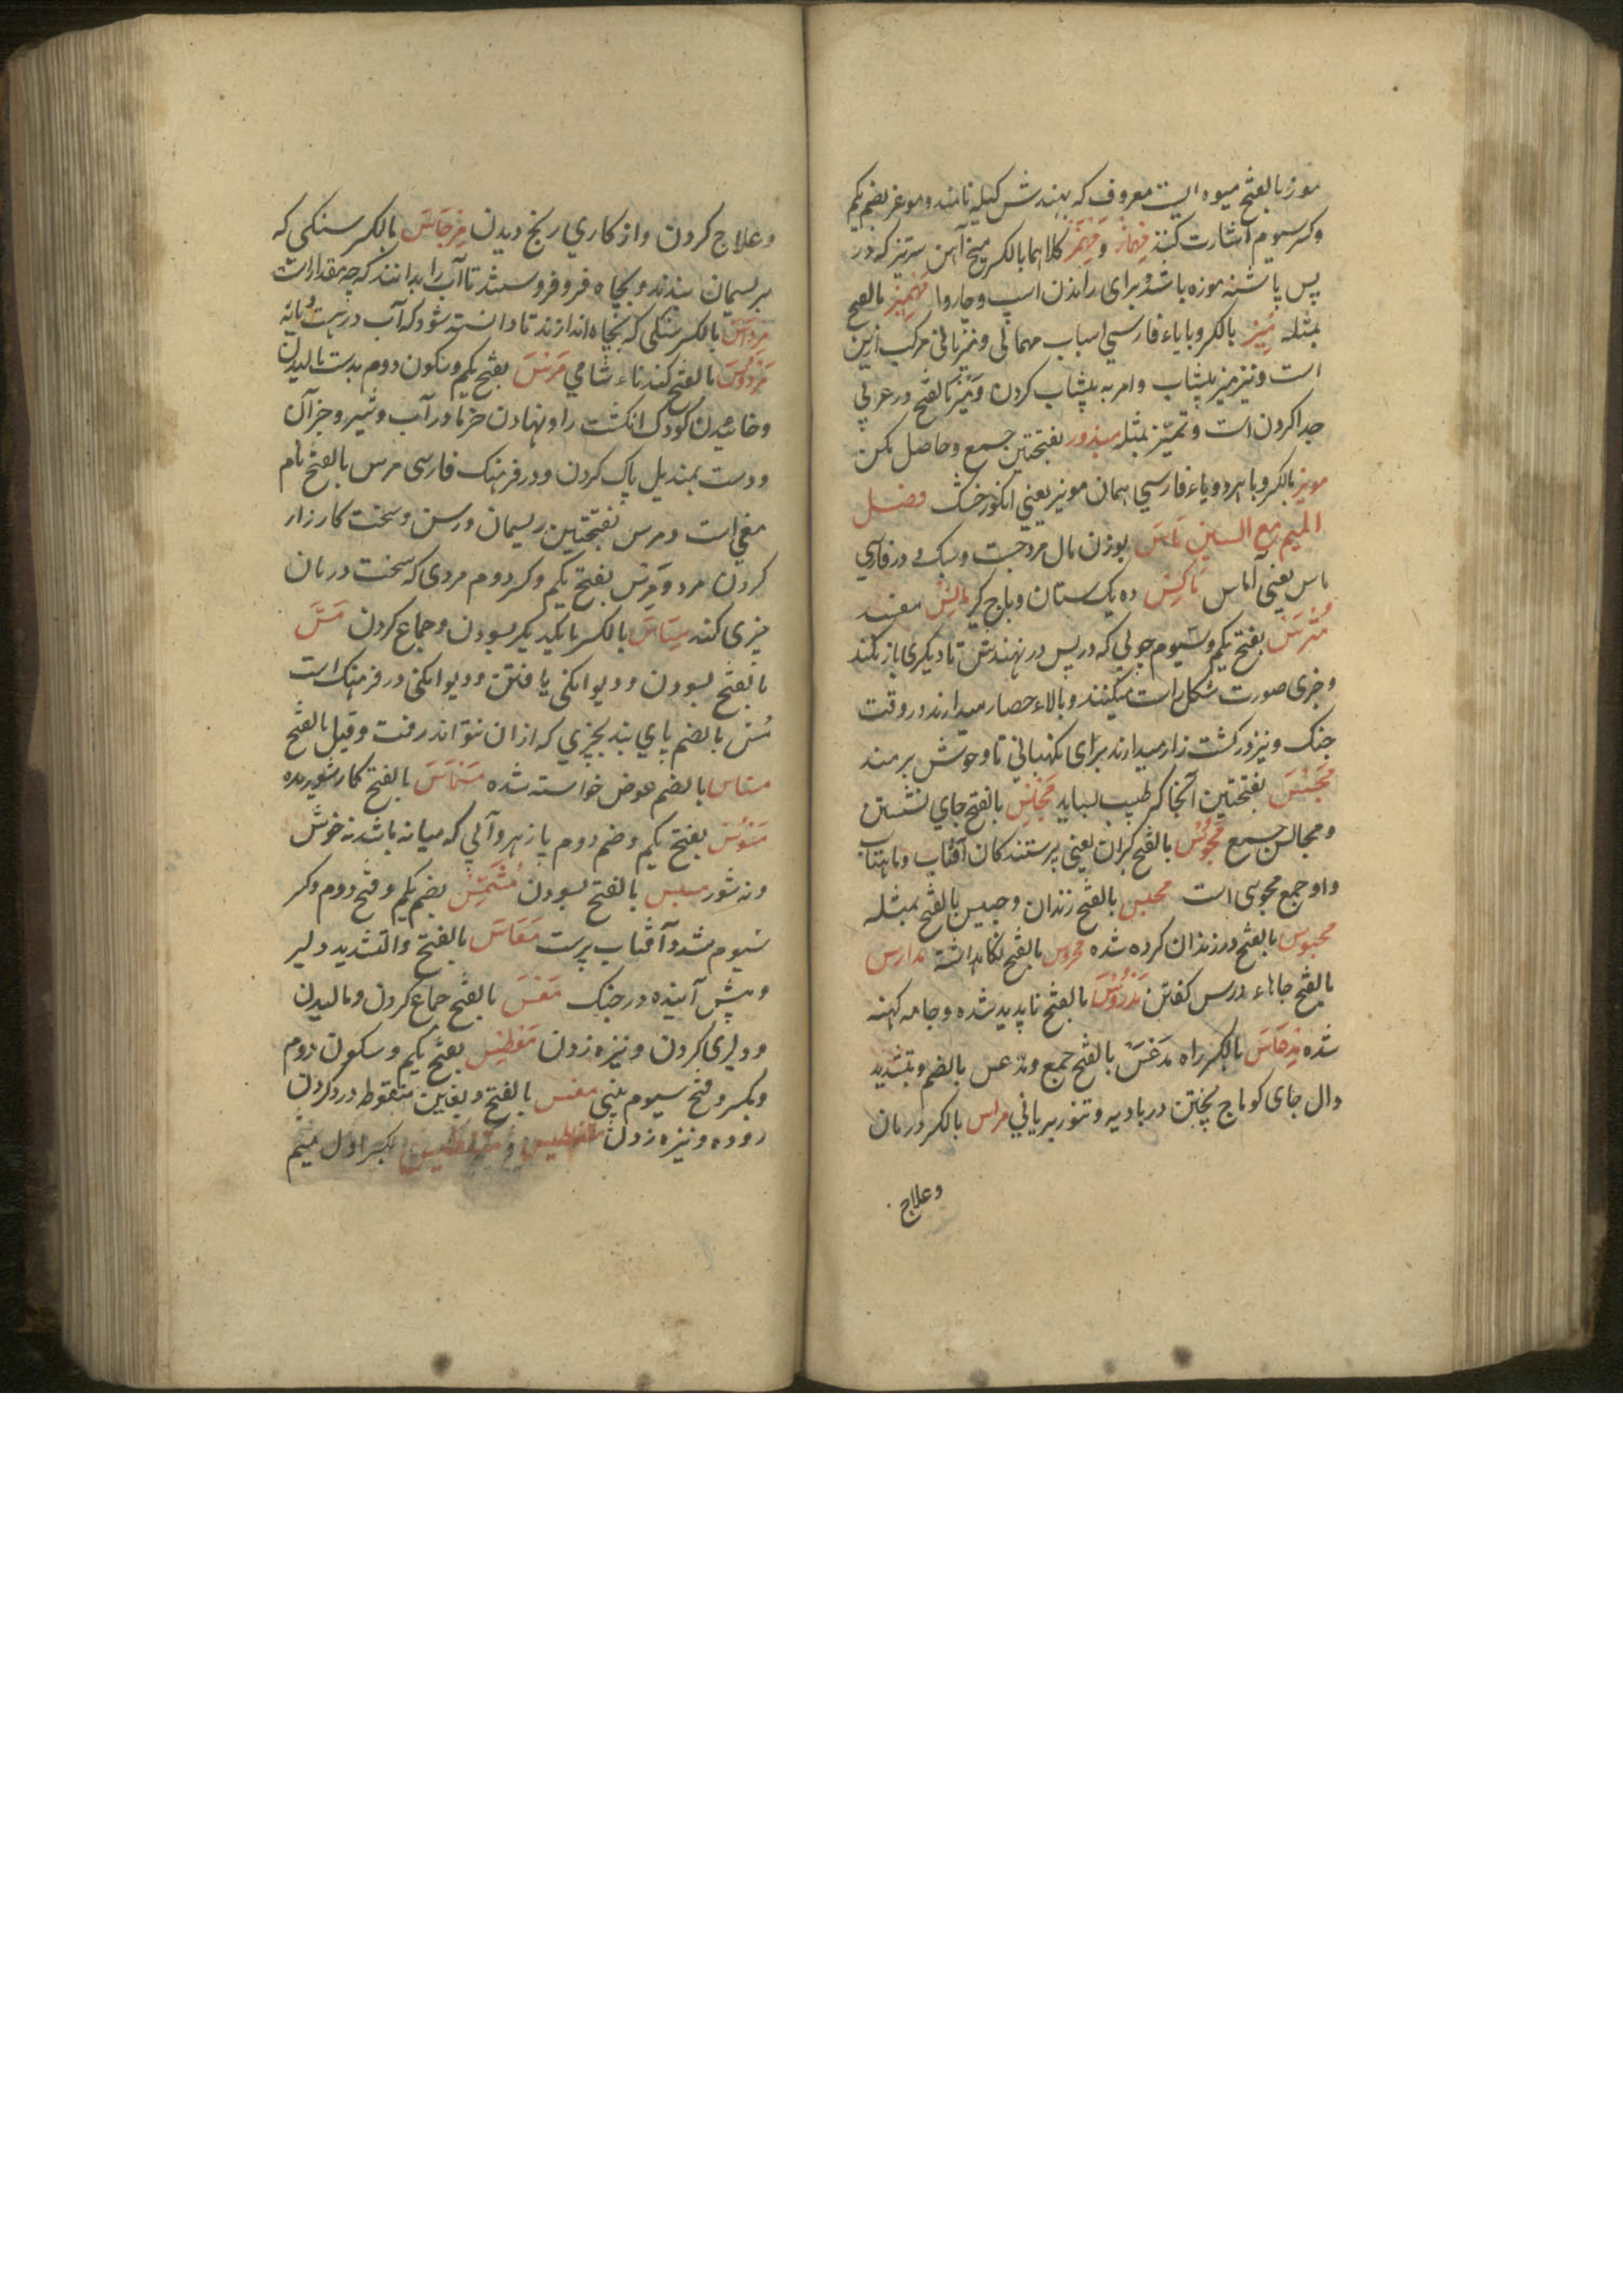 موز بالفتح میوه ایست معروف که بهندش کیله نامند و موعز بضم یکم
و کسر سیوم اشارت کننده مهماز و مهمز کلاهما بالکسر میخ آهن سرتیز که در
پس پاشنه موزه باشد برای راندن اسپ و چاروا مهمیز بالفتح
بمثله میز بالکسر و بایاء فارسی اسباب مهمانی و میزبانی مرکب ازین
است و نیز میز پیشاب و امر به پیشاب کردن و میز بالفتح در عربی
جدا کردن است و تمیز بمثله بفتحتین جمع و حاصل مکن
مویز بالکسر و با هر دو یاء فارسی همان مونیز یعنی انکور خشک فصل
المیم مع السین ماس بوزن مال مرد جست و سبک و در فارسی
ماس یعنی آماس ماکس ده یک ستان و باج گیر مالس مفسد
مترس بفتح یکم و سیوم چوبی که در پس در نهندش تا دیکری باز نکند
و چیزی صورت شکل راست میکنند و بالاء حصار میدارند در وقت
جنک و نیز در کشت زار میدارند برای نکهبانی تا وحوش برمند
مجس بفتحتین آنجا که طبیب بساید مجلس بالفتح جای نشستن
و مجالس جمع مجوس بالفتح کبران یعنی پرستندکان آفتاب و ماهتاب
و او جمع مجوسی است محبس بالفتح زندان و حبیس بالفتح بمثله
محبوس بالفتح در زندان کرده شده محروس بالفتح نکاهداشته مدارس
بالفتح جاهاء درس کفتن مدروس بالفتح ناپدید شده و جامه کهنه
شده مدعاس بالکسر راه مدعس بالفتح جمع و مدعس بالضم و بتشدید
دال جای کوماج پختن در بادیه و تنور بریانی مراس بالکسر درمان
وعلاج
وعلاج کردن و از کاری رنج دیدن مرجاس بالکسر سنکی که
بریسمان بندند و بچاه فرو فروسند تا آب را بدانند که چه مقدار است
مرداس بالکسر سنکی که بچاه اندازند تا دانسته شود که آب در هست یا نه
مردوس بالفتح کندناء شامی مرس بفتح یکم و سکون دوم بدست مالیدن
و خائیدن کودک انکشت را و نهادن خرما در آب و شیر و جز آن
و دست بمندیل پاک کردن و در فرهنک فارسی مرس بالفتح نام
مغی است و مرس بفتحتین ریسمان و رسن و سخت کارزار
کردن مرد و مرس بفتح یکم و کسر دوم مردی که سخت درمان
چیزی کند مساس بالکسر با یکدیکر بسودن و جماع کردن مس
بالفتح بسودن و دیوانکی یافتن و دیوانکی در فرهنک است
مس بالضم پای بند بچیزی که ازان نتوانند رفت و قیل بالفتح
بالضم عوض خواسته شده مسماس بالفتح کار شوریده
مسوس بفتح یکم و ضم دوم پازهر و آبی که میانه باشد نه خوش
و نه شور بالفتح بسودن مشمس بضم یکم و فتح دوم و کسر
سیوم مشدد آفتاب پرست معاس بالفتح و التشدید دلیر
و پیش آینده در جنک معس بالفتح جماع کردن و مالیدن
و دلیری کردن و نیزه زدن معطس بفتح یکم و سکون دوم
و بکسر و فتح سیوم بینی مغس بالفتح و بغین منقوطه درد کردن
روده و نیزه زدن مغناطیس و بکسر اول میم